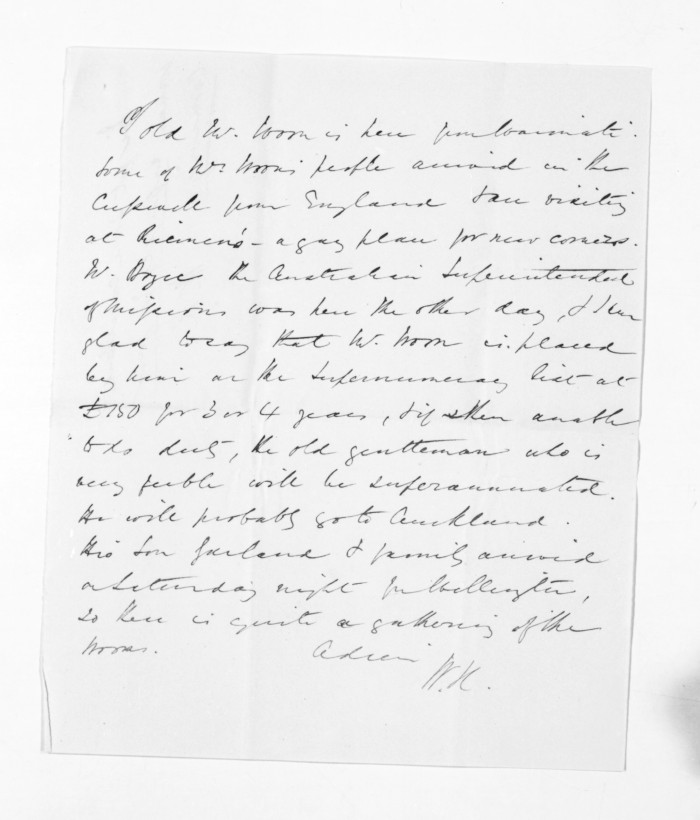 Told Mr. Woon is here from Waimati.
Some of Mrs Woon's people arrived in the
Cresswell from England & are visiting
at Riemen's - a gay place for new comers.
W. Boyce the Australian Superintendent
of Missions was here the other day, & I am
glad to say that Mr. Woon is placed
by him on the Supernumerary list at
£150 for 3 or 4 years, & if then unable
to do duty, the old gentleman who is
very feeble will be superannuated.
He will probably go to Auckland.
His Son Garland & family arrived
on Saturday night for Wellington,
so there is quite a gathering of the
Woons. Adieu
W.H.